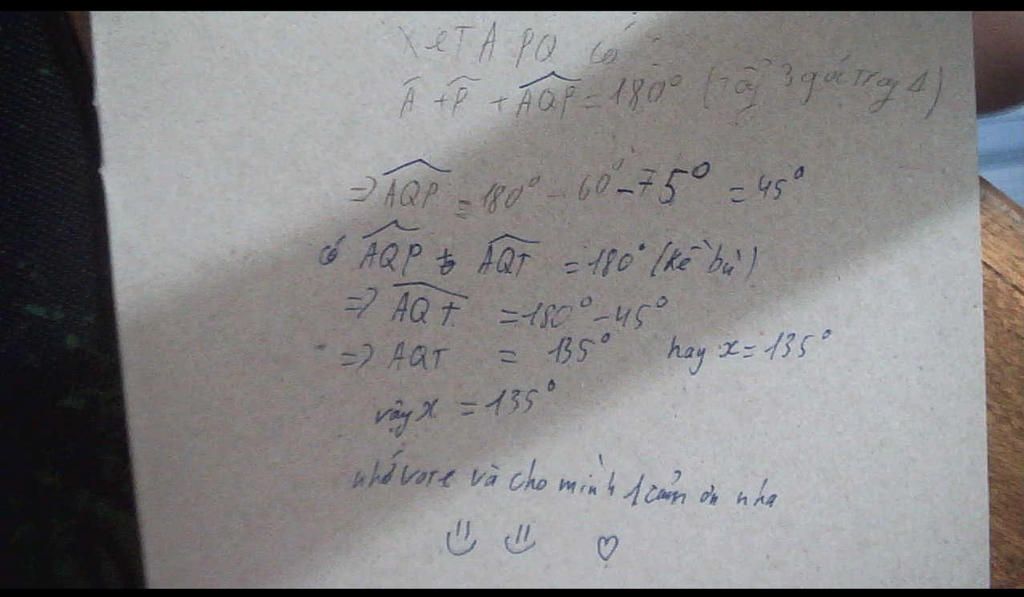 Xét A PQ có
Â + P̂ + AQP = 180° (Tổng 3 góc trong Δ)
=> AQP = 180° - 60° - 75° = 45°
có AQP + AQT = 180° (kề bù)
=> AQT = 180° - 45°
=> AQT = 135° hay x = 135°
vậy x = 135°
nhớ vote và cho mình 1 cảm ơn nha